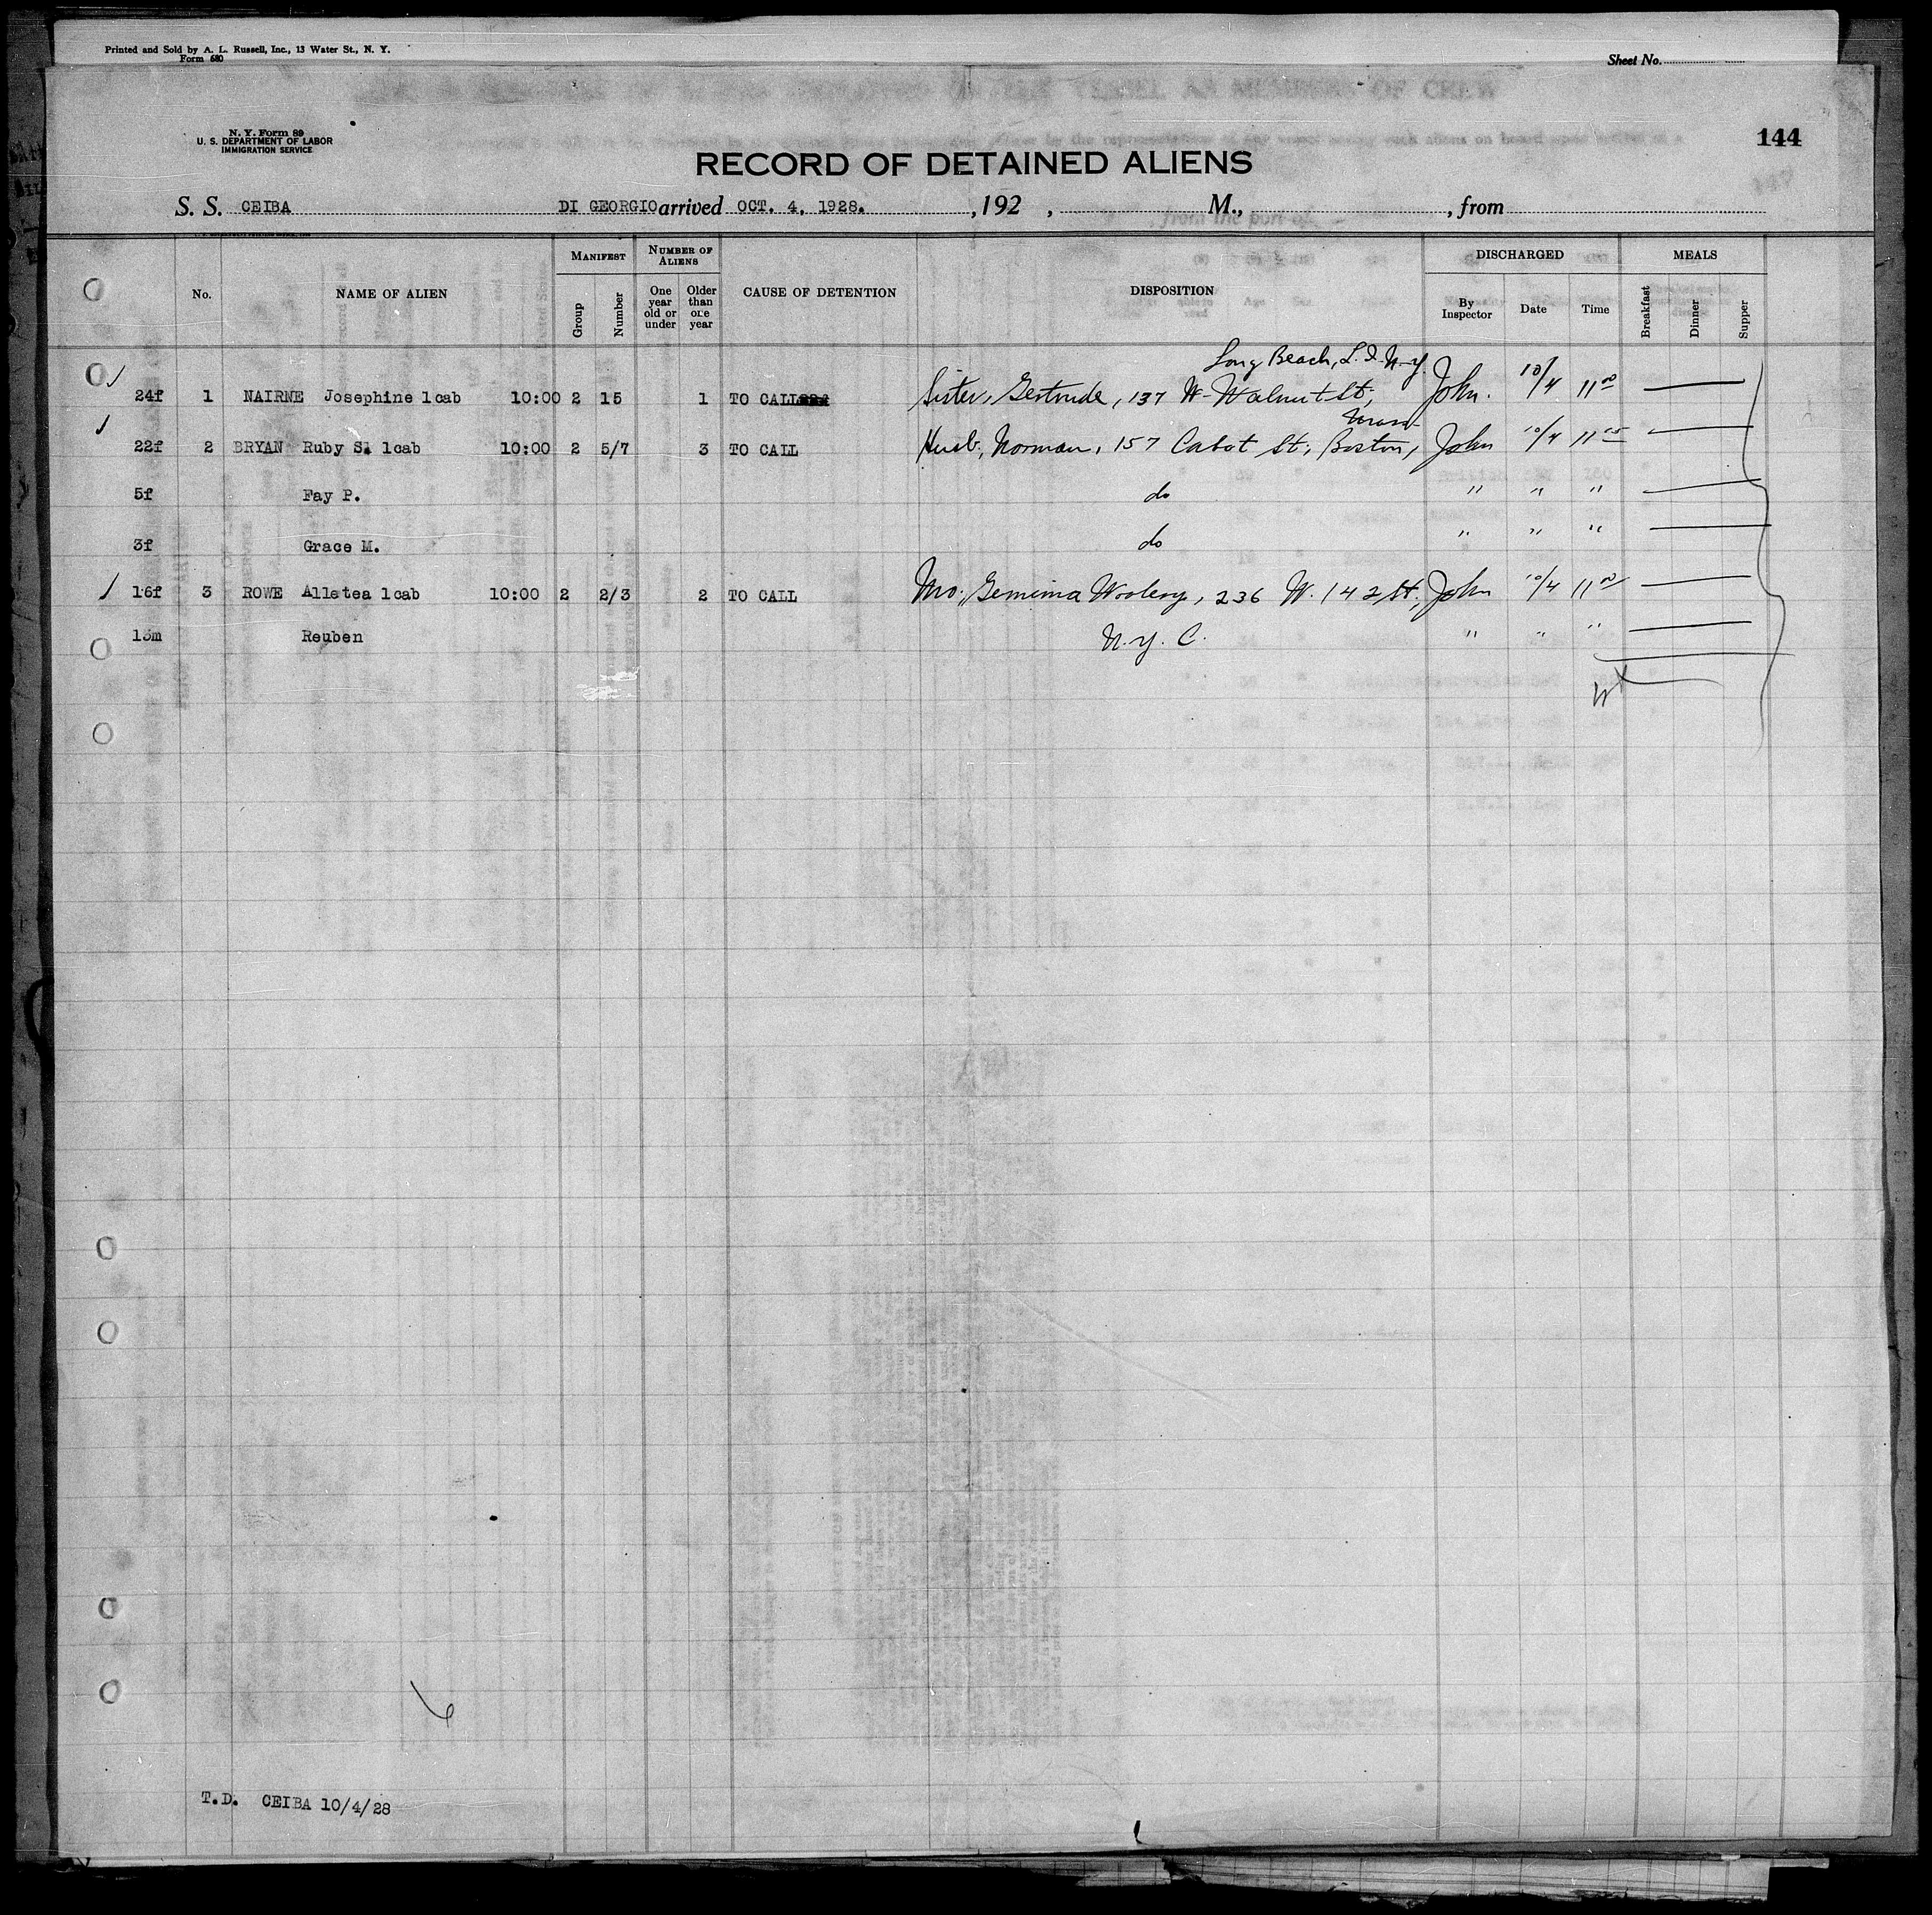 Printed and Sold by A. L. Russell, Inc., 13 Water St., N. Y.
Form 680
Sheet No.
N. Y. Form 89
U. S. DEPARTMENT OF LABOR
IMMIGRATION SERVICE
144
RECORD OF DETAINED ALIENS
S. S. CEIBA DI GEORGIO arrived OCT. 4, 1928. , 192 , M., , from
No. NAME OF ALIEN MANIFEST Group Number NUMBER OF ALIENS One year old or under Older than one year CAUSE OF DETENTION DISPOSITION DISCHARGED By Inspector Date Time MEALS Breakfast Dinner Supper
Long Beach, L. I. N.Y.
24f 1 NAIRNE Josephine 1cab 10:00 2 15 1 TO CALL Sister, Gertrude, 137 W. Walnut St, John. 10/4 11 00
Mass
22f 2 BRYAN Ruby S. 1cab 10:00 2 5/7 3 TO CALL Husb, Norman, 157 Cabot St, Boston, John 10/4 11 05
5f Fay P. do " " "
3f Grace M. do " " "
16f 3 ROWE Alletea 1cab 10:00 2 2/3 2 TO CALL Mo. Gemima Woolery, 236 W. 142 St, John 10/4 11 00
13m Reuben N.Y. C. " " "
6
T.D. CEIBA 10/4/28